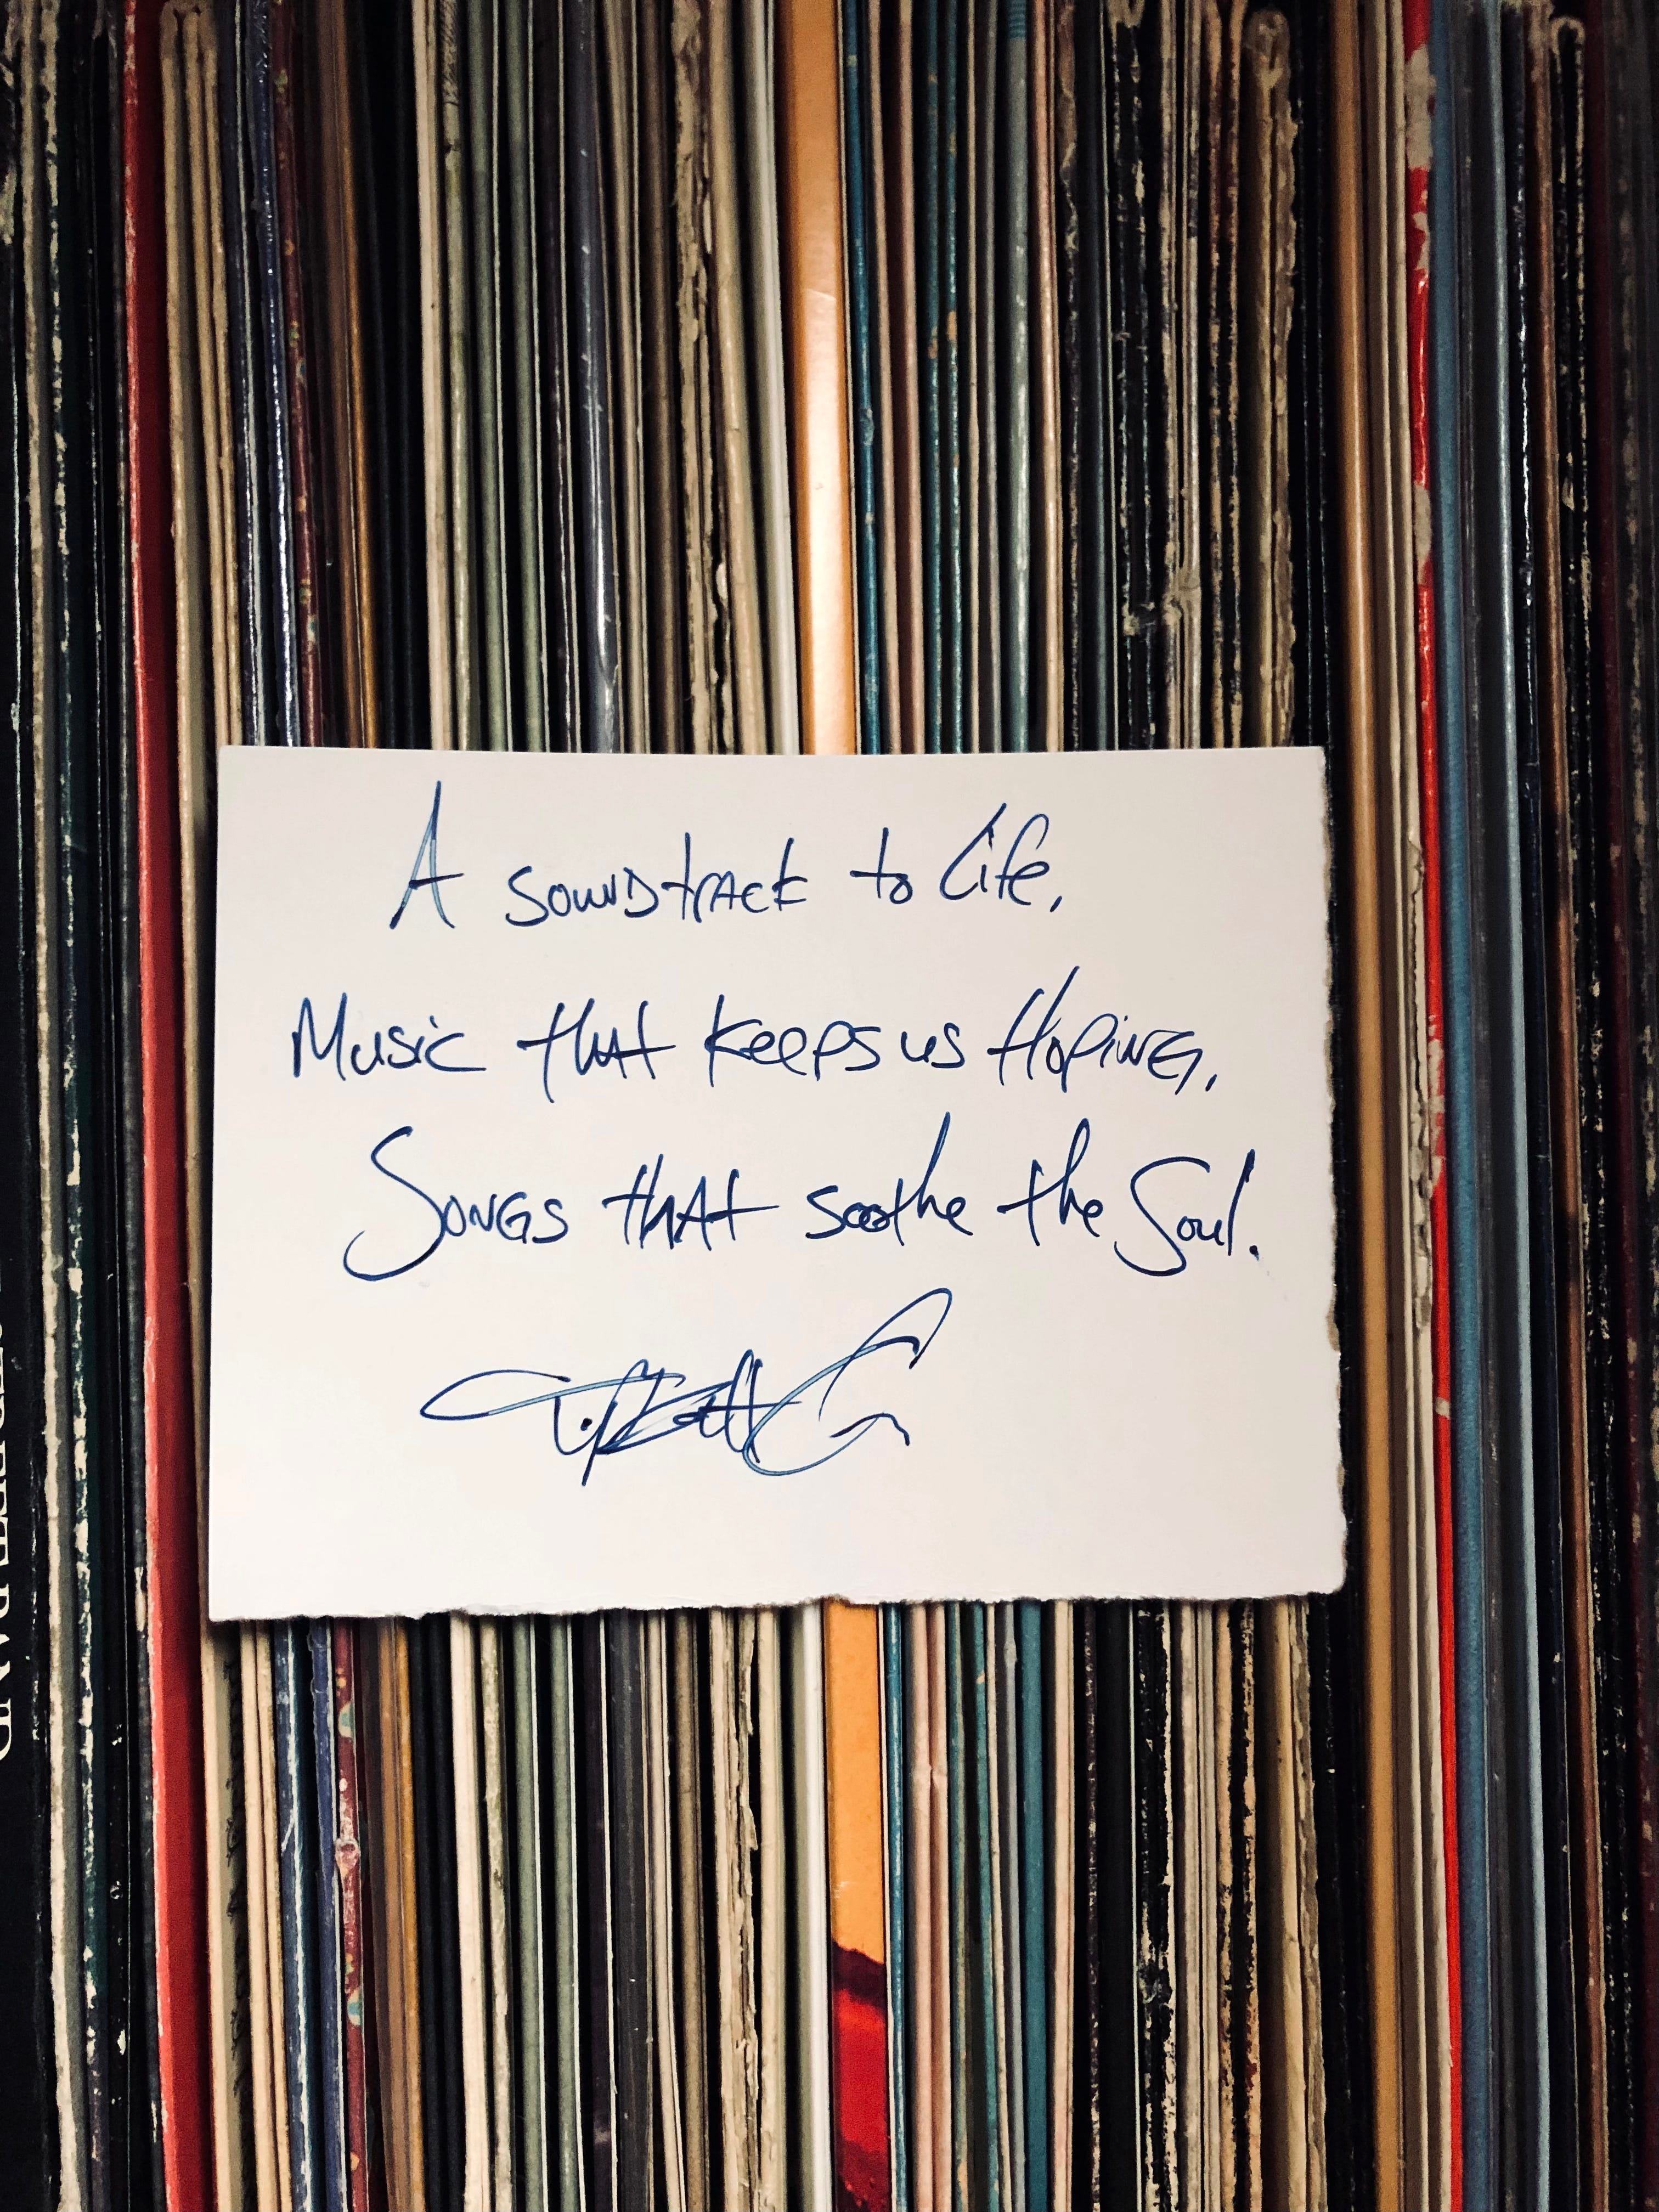 A soundtrack to life,
Music that keeps us Hoping,
Songs that soothe the Soul.